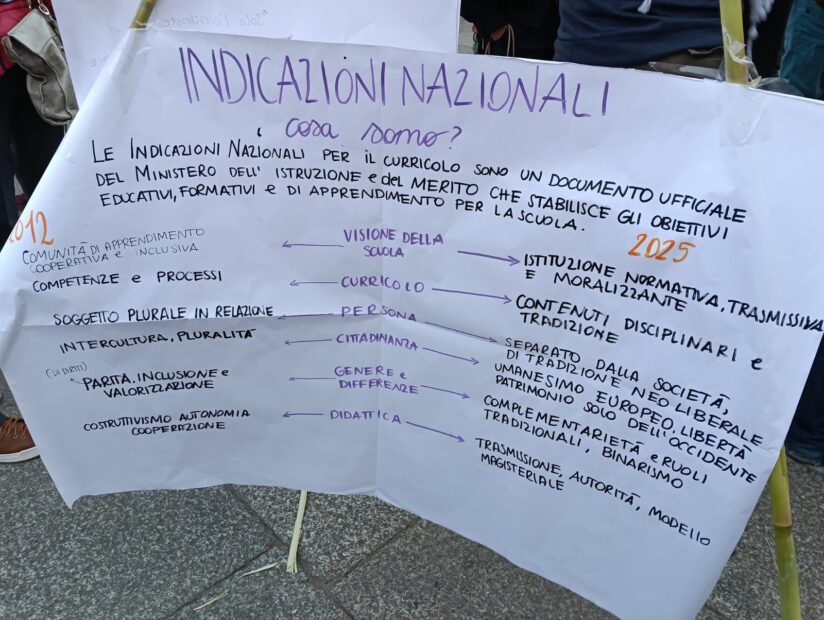 "Solo l'occidente
INDICAZIONI NAZIONALI
cosa sono?
LE INDICAZIONI NAZIONALI PER IL CURRICOLO SONO UN DOCUMENTO UFFICIALE
DEL MINISTERO DELL'ISTRUZIONE e del MERITO CHE STABILISCE GLI OBIETTIVI
EDUCATIVI, FORMATIVI e DI APPRENDIMENTO PER LA SCUOLA.
2012
COMUNITÀ DI APPRENDIMENTO
COOPERATIVA e INCLUSIVA
COMPETENZE e PROCESSI
SOGGETTO PLURALE IN RELAZIONE
INTERCULTURA, PLURALITÀ
(di DIRITTI)
PARITÀ, INCLUSIONE e
VALORIZZAZIONE
COSTRUTTIVISMO AUTONOMIA
COOPERAZIONE
VISIONE DELLA
SCUOLA
CURRICOLO
PERSONA
CITTADINANZA
GENERE e
DIFFERENZE
DIDATTICA
2025
ISTITUZIONE NORMATIVA, TRASMISSIVA
E MORALIZZANTE
CONTENUTI DISCIPLINARI e
TRADIZIONE
SEPARATO DALLA SOCIETÀ,
DI TRADIZIONE NEO LIBERALE
UMANESIMO EUROPEO, LIBERTÀ
PATRIMONIO SOLO DELL'OCCIDENTE
COMPLEMENTARIETÀ e RUOLI
TRADIZIONALI, BINARISMO
TRASMISSIONE, AUTORITÀ, MODELLO
MAGISTERIALE